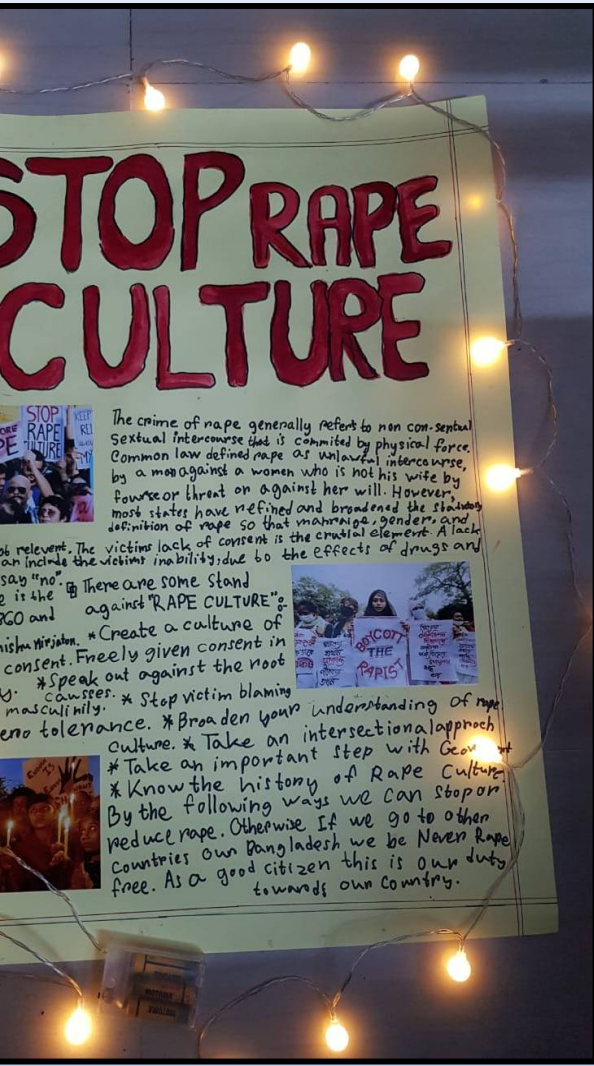 STOP RAPE
CULTURE
STOP
RAPE
CULTURE
KEEP
The crime of rape generally refers to non con-sentual
Sextual intercourse that is commited by physical force.
Common law defined rape as unlawful intercourse,
by a man against a women who is not his wife by
fourse or threat on against her will. However,
most states have refined and broadened the statutory
definition of rape so that mahraige, gender, and
relevent. The victims lack of consent is the crutial element. A lack
an include the victims inability, due to the effects of drugs and
say "no".
There are some Stand
e is the
against "RAPE CULTURE":
and
* Create a culture of
consent. Freely given consent in
y. * Speak out against the root
causses.
masculinity. * Stop victim blaming
ero tolerance. * Broaden your understanding of rape
Culture. * Take an intersectional approch
* Take an important step with
* Know the history of Rape Culture.
By the following ways we can stop or
reduce rape. Otherwise If we go to other
Countries our Bangladesh we be Never Rape
free. As a good citizen this is our duty
towards our country.
BOYCOTT
THE
RAPIST